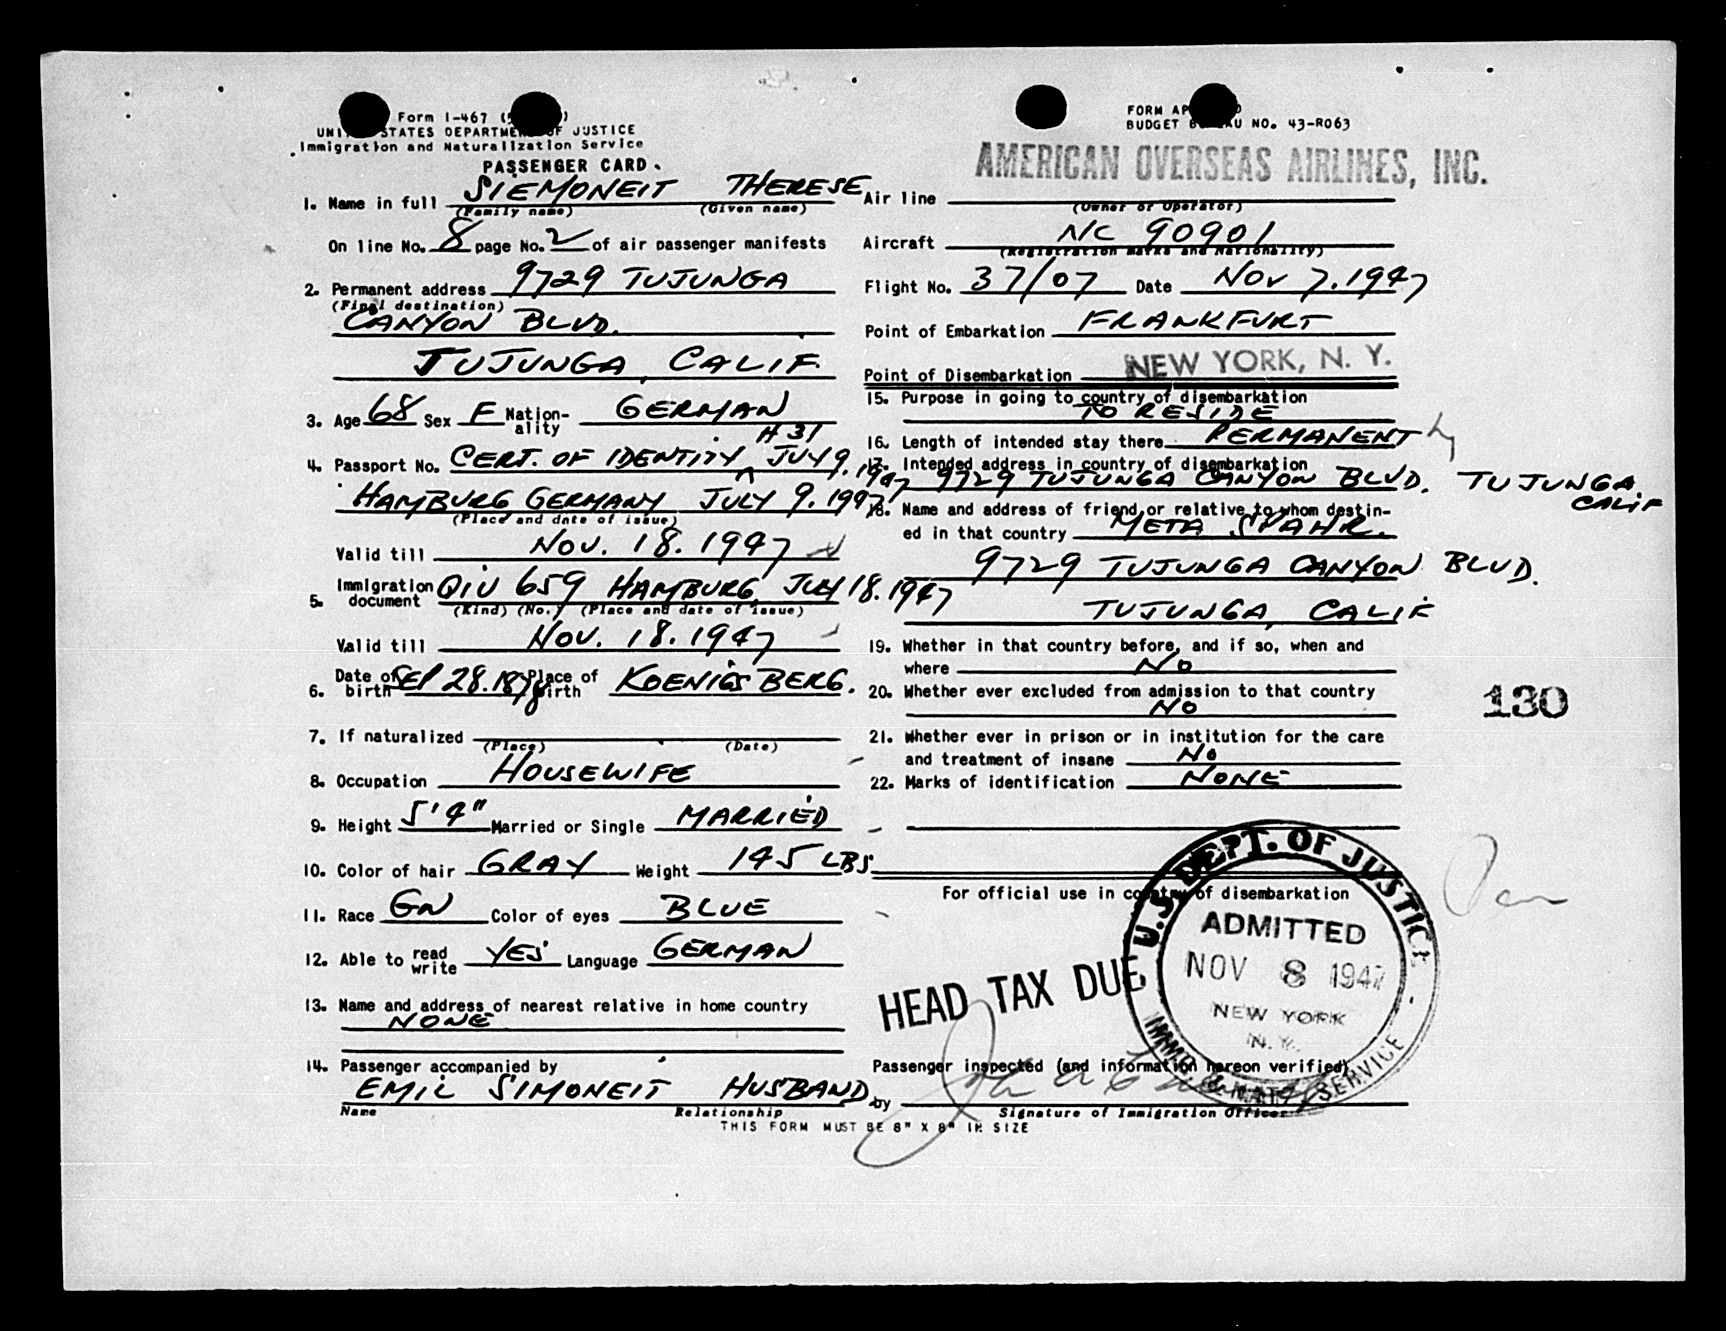 Form I-467
UNITED STATES DEPARTMENT OF JUSTICE
Immigration and Naturalization Service
PASSENGER CARD
1. Name in full SIEMONEIT THERESE
(Family name) (Given name)
On line No. 8 page No. 2 of air passenger manifests
2. Permanent address 9729 TUJUNGA
(Final destination)
CANYON BLVD.
TUJUNGA, CALIF.
3. Age 68 Sex F Nation-ality GERMAN
H 31
4. Passport No. CERT. OF IDENTITY JULY 9. 1947
HAMBURG GERMANY JULY 9. 1947
(Place and date of issue)
Valid till NOV. 18. 1947
5. Immigration document QIV 659 HAMBURG, JULY 18. 1947
(Kind) (No.) (Place and date of issue)
Valid till NOV. 18. 1947
6. Date of birth SEP 28. 1878 Place of birth KOENIGSBERG.
7. If naturalized
(Place) (Date)
8. Occupation HOUSEWIFE
9. Height 5'4" Married or Single MARRIED
10. Color of hair GRAY Weight 145 LBS
11. Race GN Color of eyes BLUE
12. Able to read write YES Language GERMAN
13. Name and address of nearest relative in home country
NONE
14. Passenger accompanied by
EMIL SIMONEIT HUSBAND
Name Relationship
THIS FORM MUST BE 8" X 8" IN SIZE
FORM AP
BUDGET BUREAU NO. 43-R063
AMERICAN OVERSEAS AIRLINES, INC.
Air line
(Owner or Operator)
Aircraft NC 90901
(Registration marks and Nationality)
Flight No. 37/07 Date NOV 7. 1947
Point of Embarkation FRANKFURT
Point of Disembarkation NEW YORK, N. Y.
15. Purpose in going to country of disembarkation
TO RESIDE
16. Length of intended stay there PERMANENTLY
17. Intended address in country of disembarkation
9729 TUJUNGA CANYON BLVD. TUJUNGA
CALIF
18. Name and address of friend or relative to whom destin-
ed in that country META SPAHR.
9729 TUJUNGA CANYON BLVD.
TUJUNGA, CALIF
19. Whether in that country before, and if so, when and
where NO
20. Whether ever excluded from admission to that country
NO
130
21. Whether ever in prison or in institution for the care
and treatment of insane NO
22. Marks of identification NONE
For official use in country of disembarkation
U.S. DEPT. OF JUSTICE
ADMITTED
NOV 8 1947
NEW YORK
N.Y.
IMMIG. & NATZ. SERVICE
HEAD TAX DUE
Passenger inspected (and information hereon verified)
by
Signature of Immigration Officer